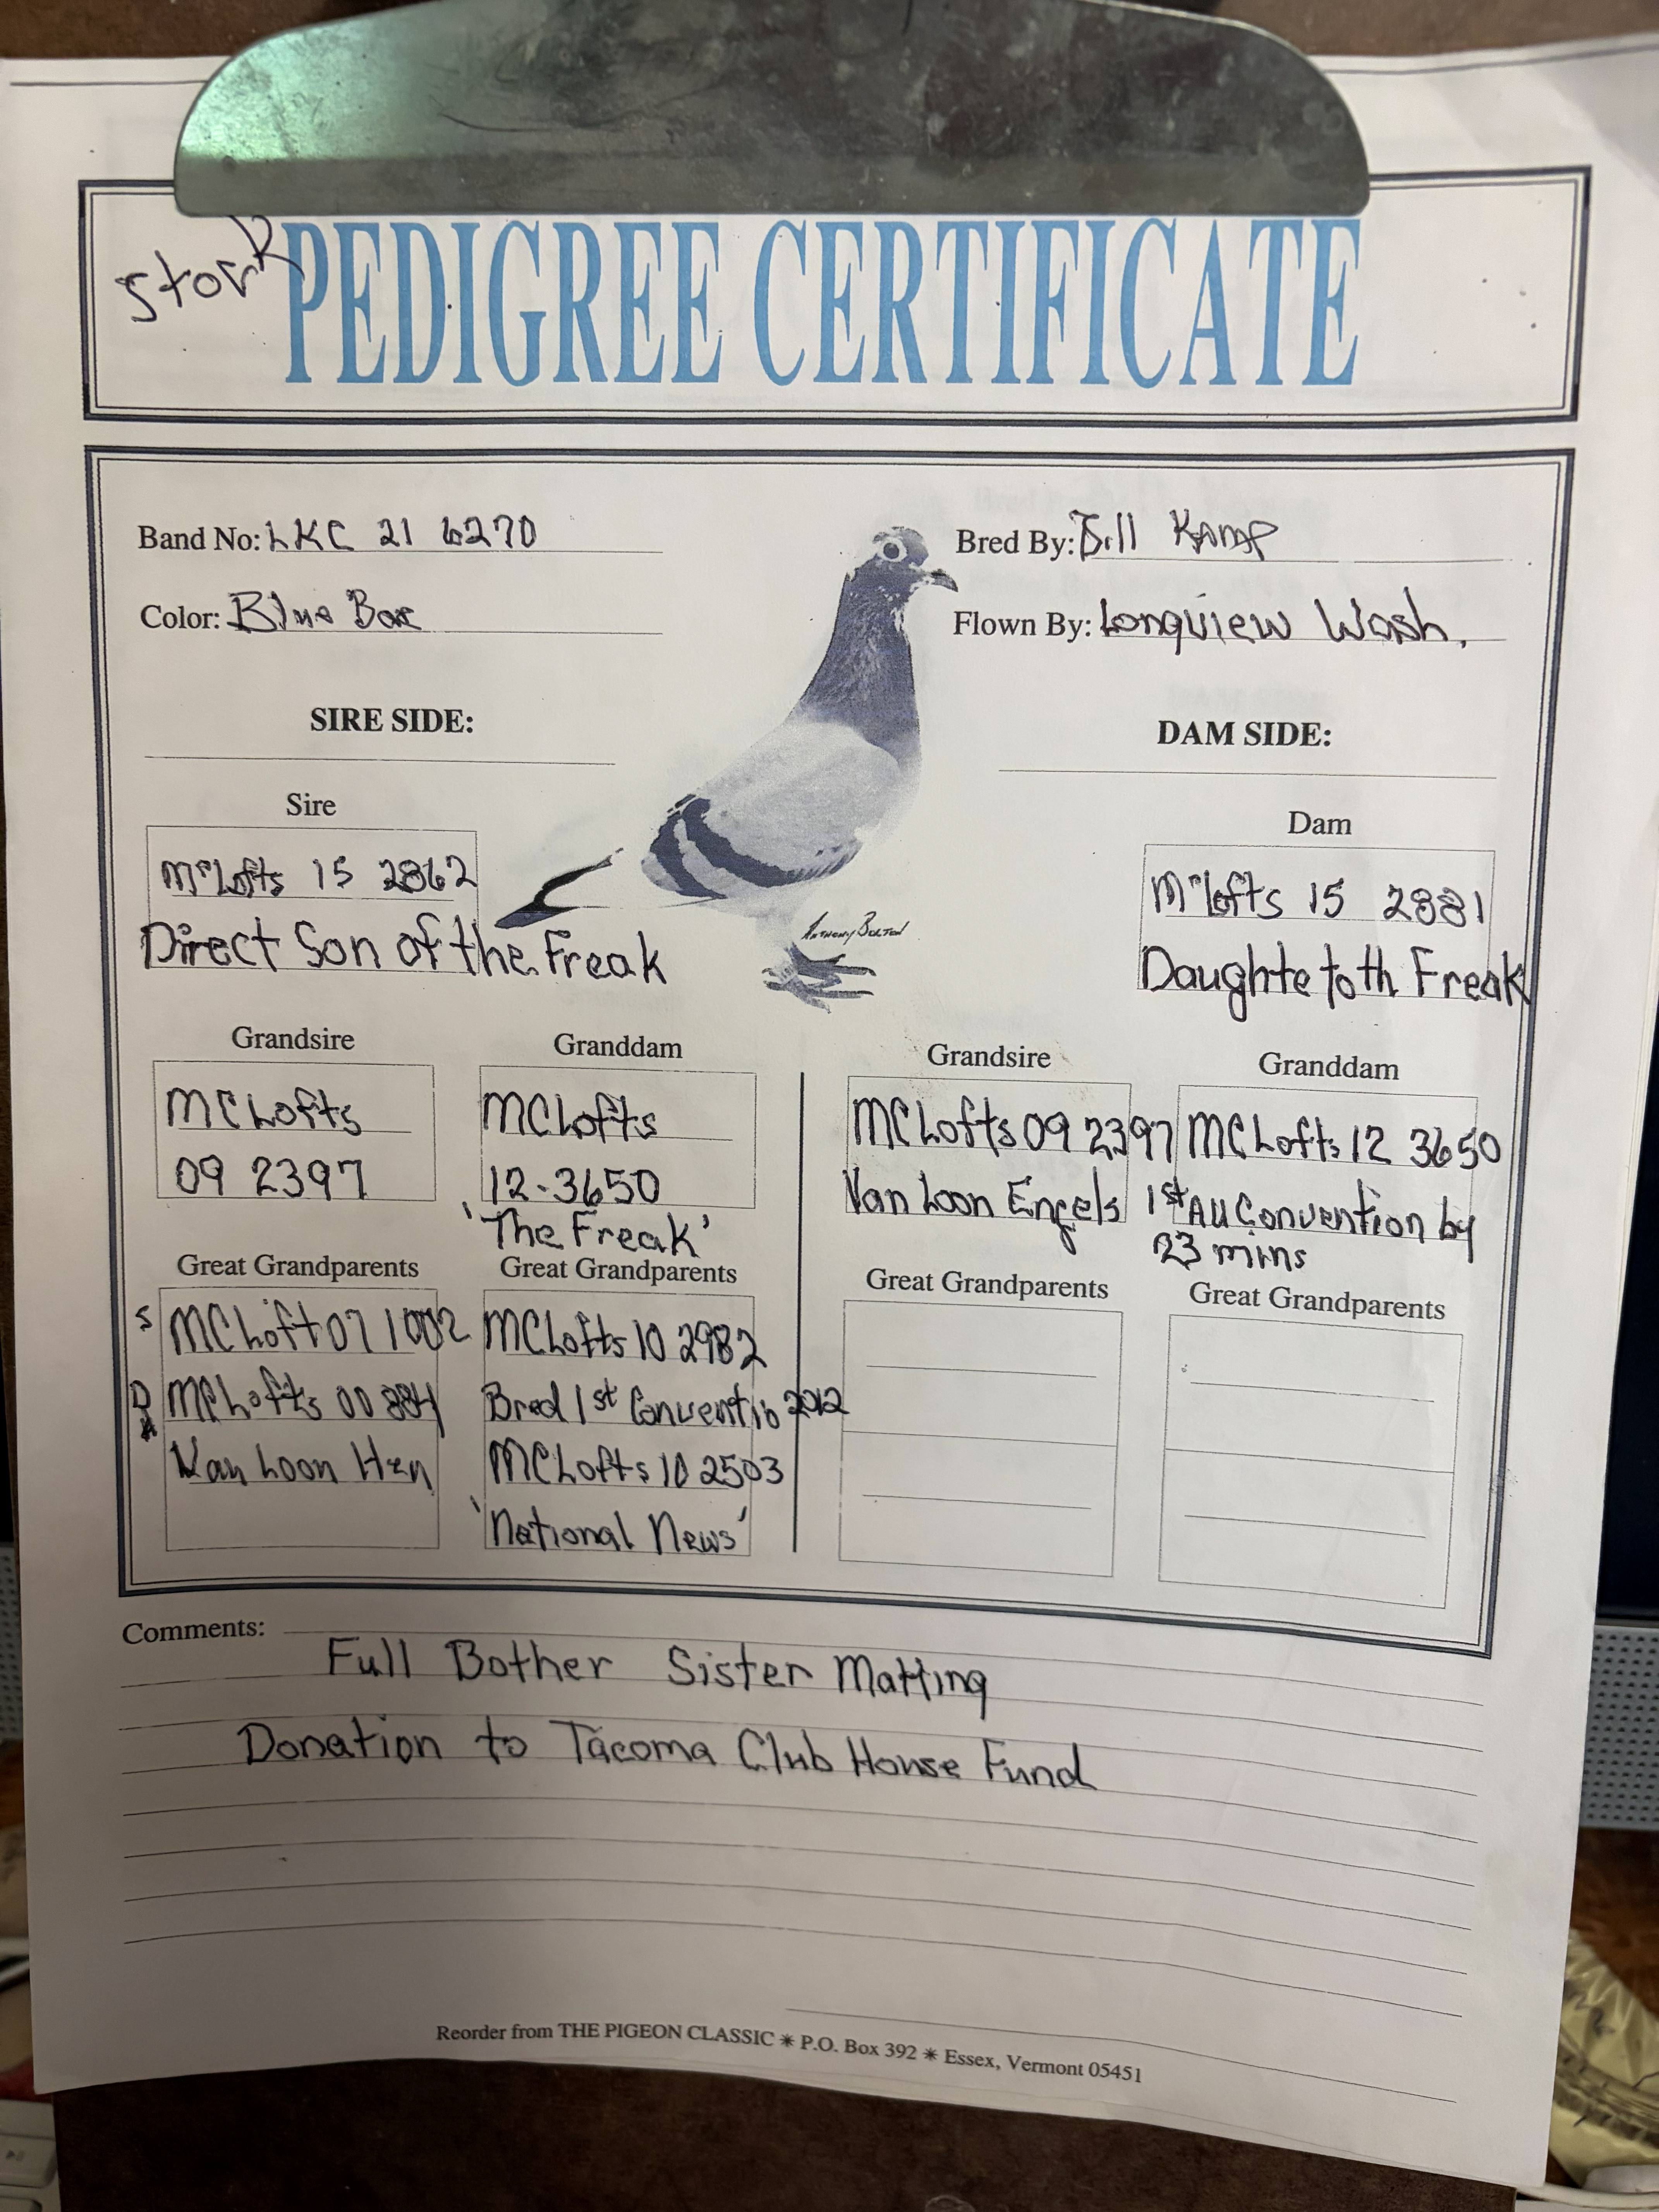 Stork
PEDIGREE CERTIFICATE
Band No: LKC 21 6270
Bred By: Bill Kamp
Color: Blue Bar
Flown By: Longview Wash.
SIRE SIDE:
DAM SIDE:
Sire
Dam
MCLofts 15 2862
Direct Son of the Freak
MCLofts 15 2881
Daughte to th Freak
Anthony Bolton
Grandsire
Granddam
Grandsire
Granddam
MCLofts
09 2397
MCLofts
12-3650
'The Freak'
MCLofts 09 2397
Van Loon Engels
MCLofts 12 3650
1st AU Convention by
23 mins
Great Grandparents
Great Grandparents
Great Grandparents
Great Grandparents
S MCLoft 07 1002
D MCLofts 00 884
Van Loon Hen
MCLofts 10 2982
Bred 1st Conventio 2012
MCLofts 10 2503
'National News'
Comments:
Full Bother Sister Matting
Donation to Tacoma Club House Fund
Reorder from THE PIGEON CLASSIC ✳ P.O. Box 392 ✳ Essex, Vermont 05451